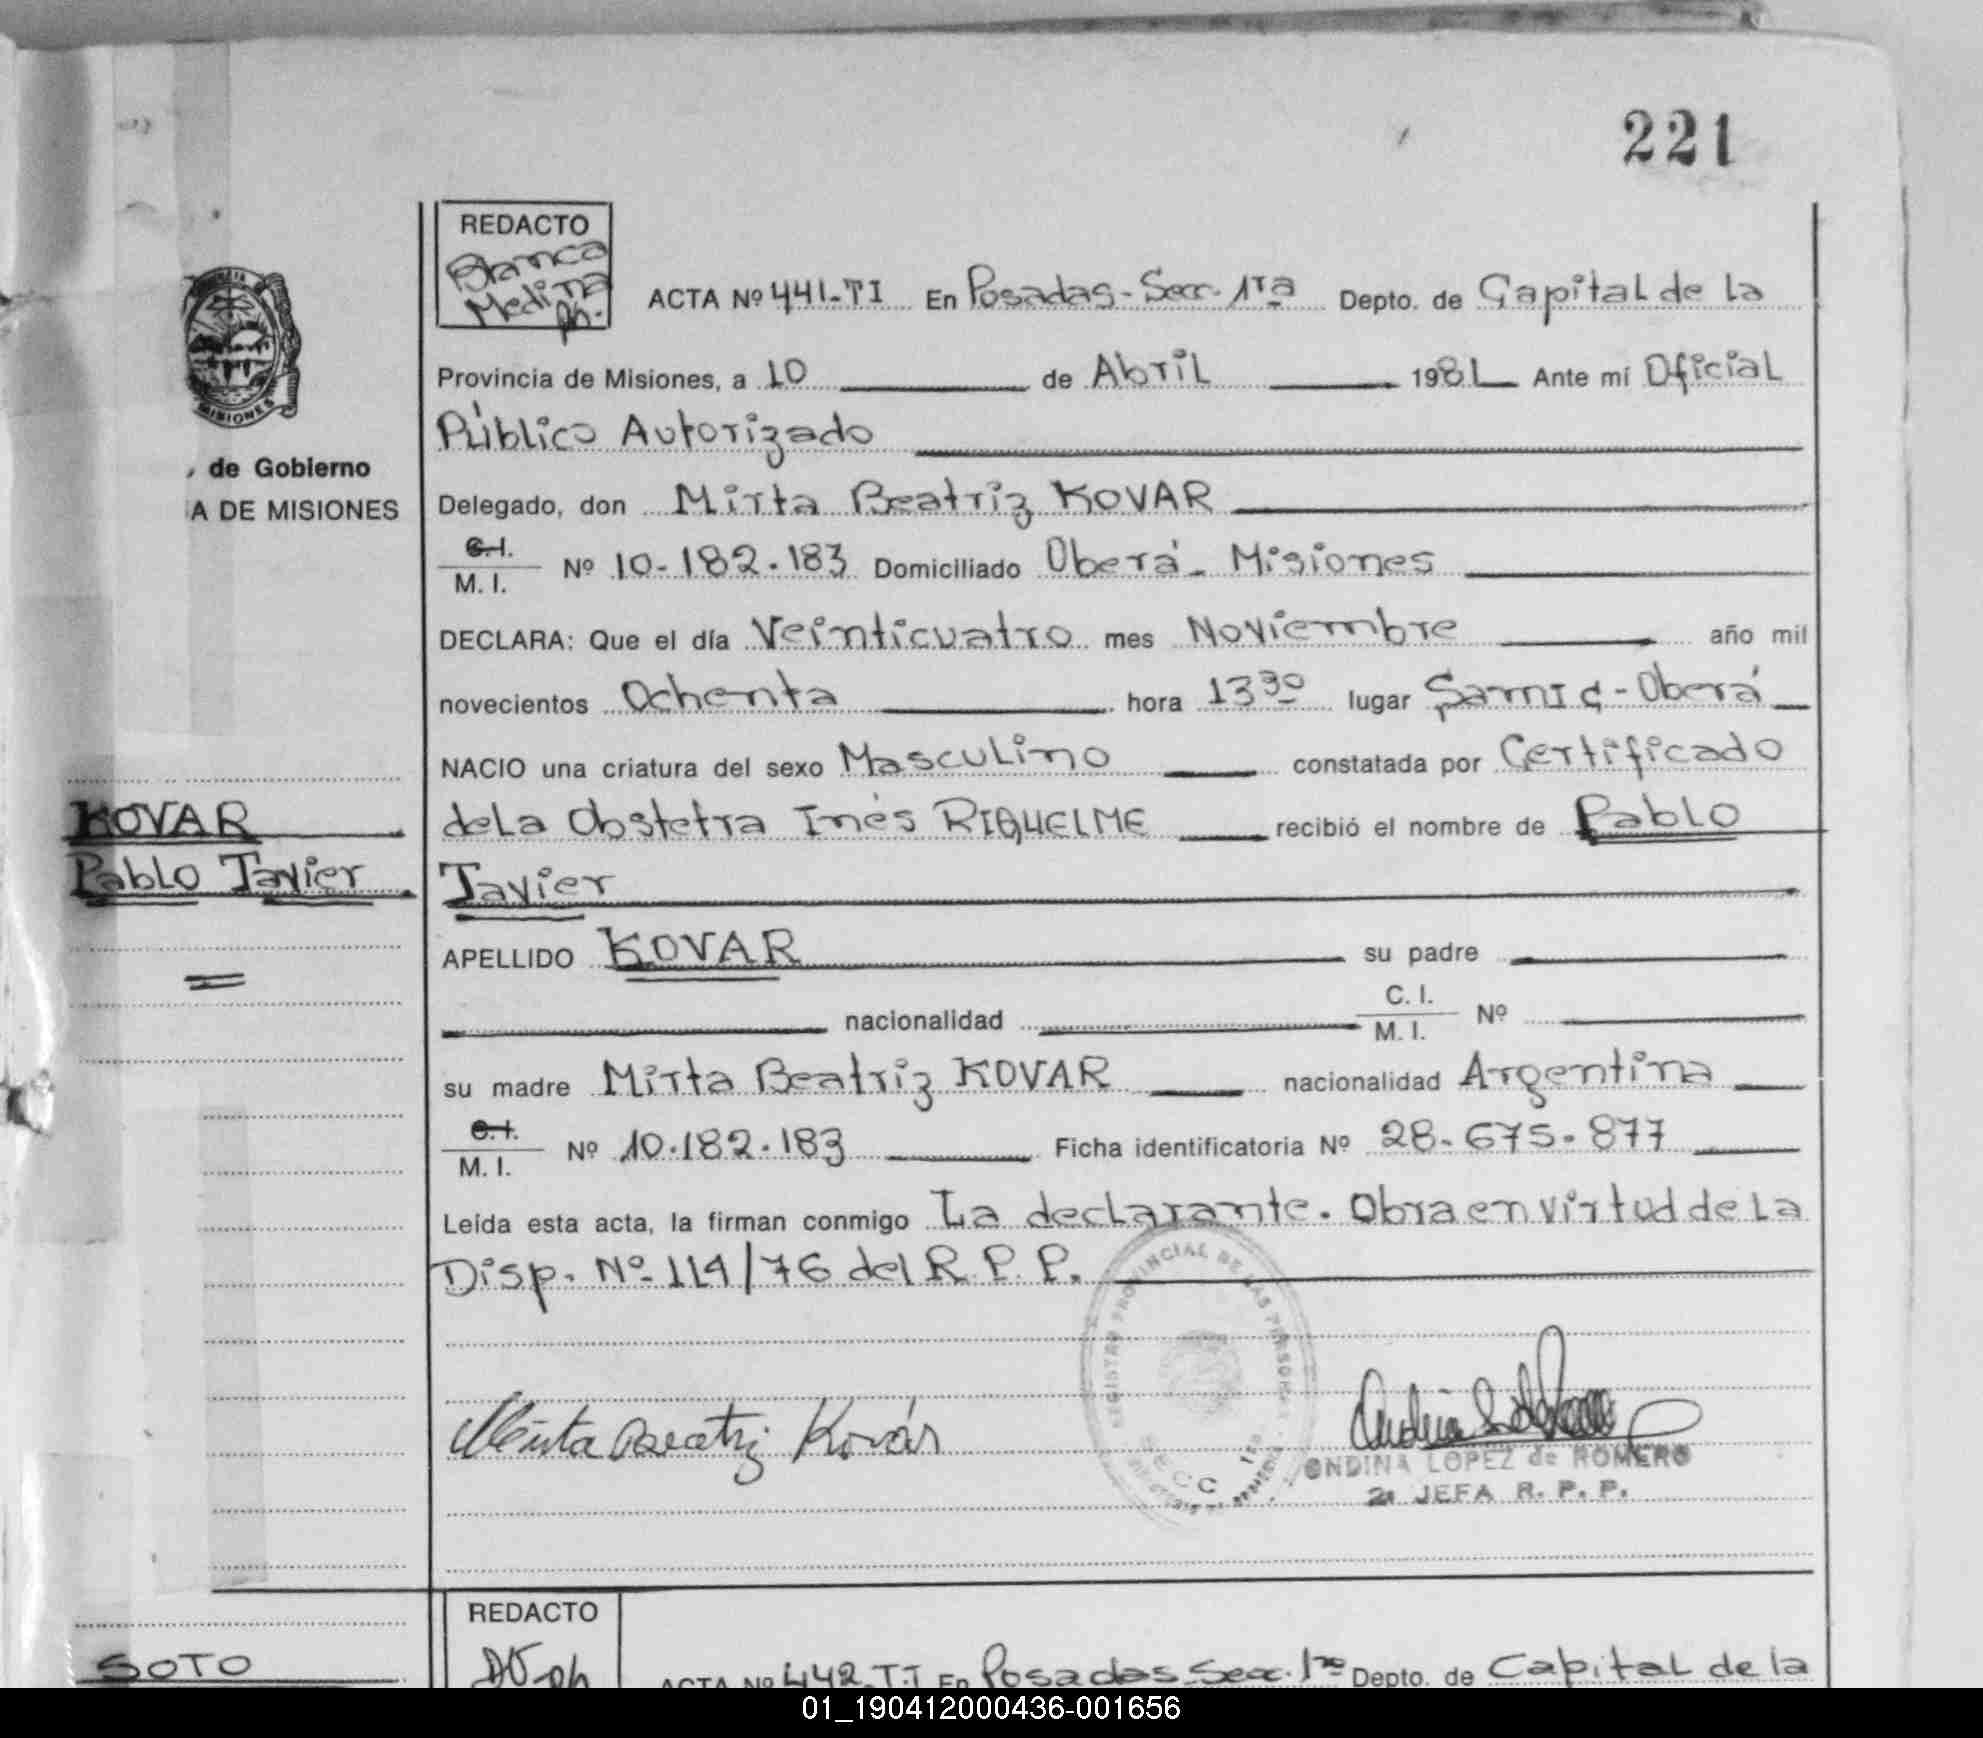 221
REDACTO
Blanca
Medina
ph.
ACTA Nº 441-TI En Posadas-Secc. 1ra Depto. de Capital de la
Provincia de Misiones, a 10 de Abril 1981 Ante mí Oficial
Público Autorizado
, de Gobierno
A DE MISIONES
MISIONES
Delegado, don Mirta Beatriz KOVAR
C.I.
M. I. Nº 10-182.183 Domiciliado Oberá- Misiones
DECLARA: Que el día Veinticuatro mes Noviembre año mil
novecientos Ochenta hora 13 30 lugar Samic-Oberá
NACIO una criatura del sexo Masculino constatada por Certificado
KOVAR
Pablo Javier
dela Obstetra Inés RIQUELME recibió el nombre de Pablo
Javier
APELLIDO KOVAR su padre
nacionalidad C. I.
M. I. Nº
su madre Mirta Beatriz KOVAR nacionalidad Argentina
C.I.
M. I. Nº 10.182.183 Ficha identificatoria Nº 28-675.877
Leída esta acta, la firman conmigo La declarante. Obra en virtud de La
Disp. Nº 114/76 del R.P.P.
REGISTRO PROVINCIAL DE LAS PERSONAS
SECC. 1ra
Mirta Beatriz Kovár
ONDINA LOPEZ de ROMERO
2a JEFA R. P. P.
REDACTO
SOTO
ACTA Nº 442-TI En Posadas Secc. 1ra Depto. de Capital de la
01_190412000436-001656